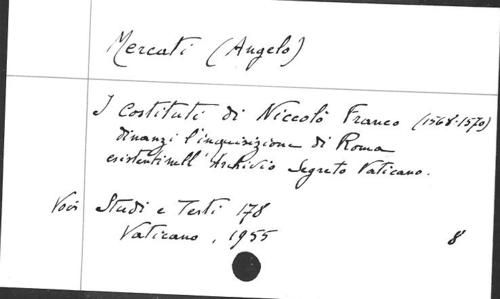 Mercati (Angelo)
I Costituti di Niccolò Franco (1568-1570)
dinanzi l'inquisizione di Roma
esistenti nell'Archivio Segreto Vaticano.
Voir Studi e Testi 178
Vaticano, 1955
8